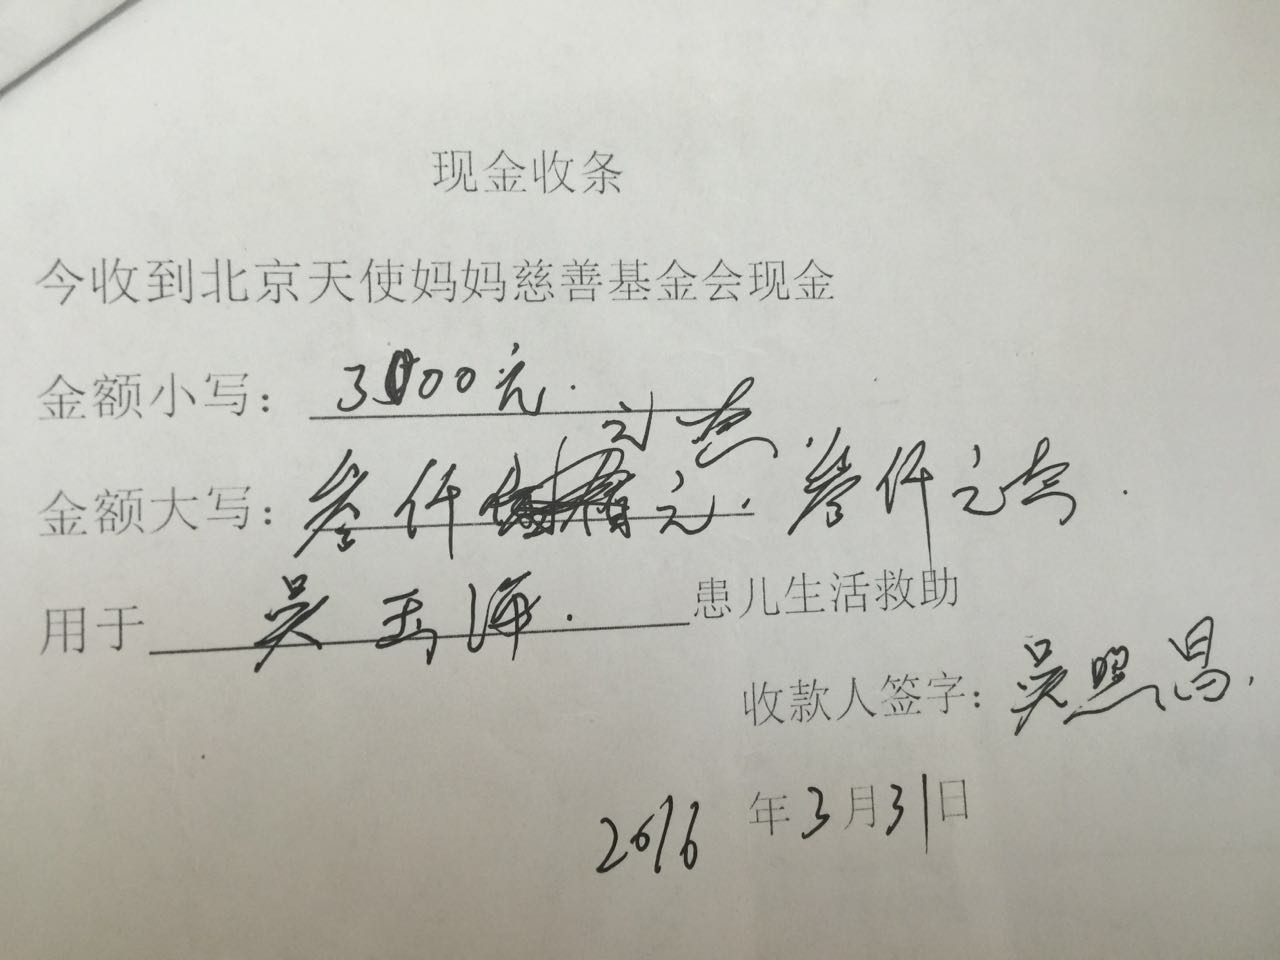 现金收条
今收到北京天使妈妈慈善基金会现金
金额小写：3000元.
金额大写：叁仟元. 元整 叁仟元整.
用于 吴玉海. 患儿生活救助
收款人签字：吴照昌.
2016年3月31日